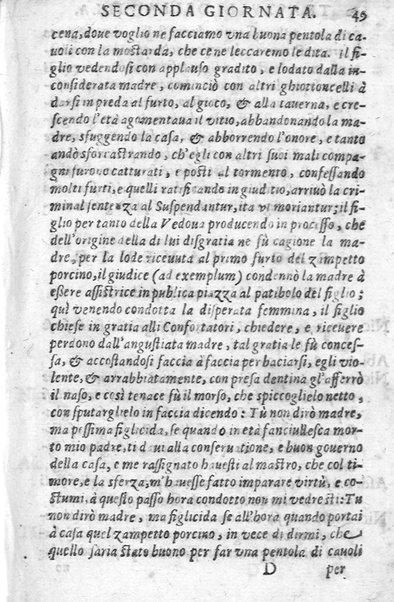 SECONDA GIORNATA. 49
cena, doue voglio ne facciamo vna buona pentola di ca-
uoli con la mostarda, che cene leccaremo le dita. il fi-
glio vedendosi con applauso gradito, e lodato dalla in-
considerata madre, cominciò con altri ghiottoncelli à
darsi in preda al furto, al gioco, & alla tauerna, e cre-
scendo l'età agomentaua il vitio, abbandonando la ma-
dre, sfuggendo la casa, & abborrendo l'onore, e tanto
andò sforcastrando, ch'egli con altri suoi mali compa-
gni furono catturati, e posti al tormento, confessando
molti furti, e quelli ratificando in giuditio, arriuò la cri-
minal sentenza al Suspendantur, ita vt moriantur; il fi-
glio per tanto della Vedoua producendo in processo, che
dell'origine della di lui disgratia ne fù cagione la ma-
dre, per la lode riceuuta al primo furto del zampetto
porcino, il giudice (ad exemplum) condennò la madre à
eßere assistrice in publica piazza al patibolo del figlio;
quì venendo condotta la disperata femmina, il figlio
chiese in gratia alli Confortatori, chiedere, e riceuere
perdono dall'angustiata madre, tal gratia le fù conces-
sa, & accostandosi faccia à faccia per baciarsi, egli vio-
lente, & arrabbiatamente, con presa dentina gl'afferrò
il naso, e così tenace fù il morso, che spiccoglielo netto,
con sputarglielo in faccia dicendo: Tù non dirò madre,
ma pessima figlicida, se quando in età fanciullesca mor-
to mio padre, ti daui alla conseruatione, e buon gouerno
della casa, e me rassignato hauesti al mastro, che col ti-
more, e la sferza, m'hauesse fatto imparare virtù, e co-
stumi, à questo passo hora condotto non mi vedresti: Tu
non dirò madre, ma figlicida se all'hora quando portai
à casa quel zampetto porcino, in vece di dirmi, che
quello saria stato buono per far vna pentola di cauoli
D per